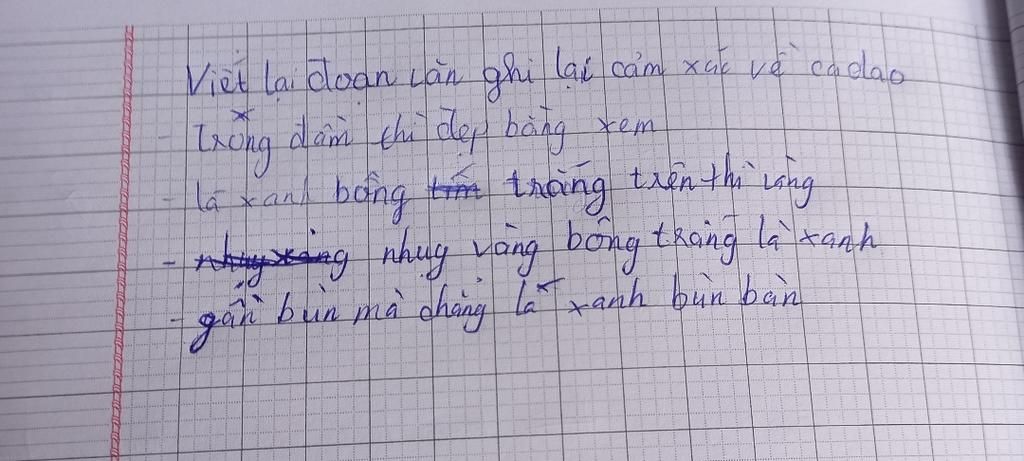 Viết lại đoạn văn ghi lại cảm xúc về ca dao
- Trong đầm thì đẹp bằng xem
- lá xanh bông trắng trên thì vàng
- nhụy vàng bông trắng lá xanh
- gần bùn mà chẳng lá xanh bùn bàn